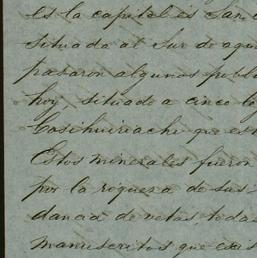 es la capital es San
situada al Sur de aqu
pasaron algunos pueblo
hoy, situado a cinco le
Cosihuiriachi que es
Estos minerales fueron
por la riqueza de sus
dancia de vetas, toda
manuscritos que exis